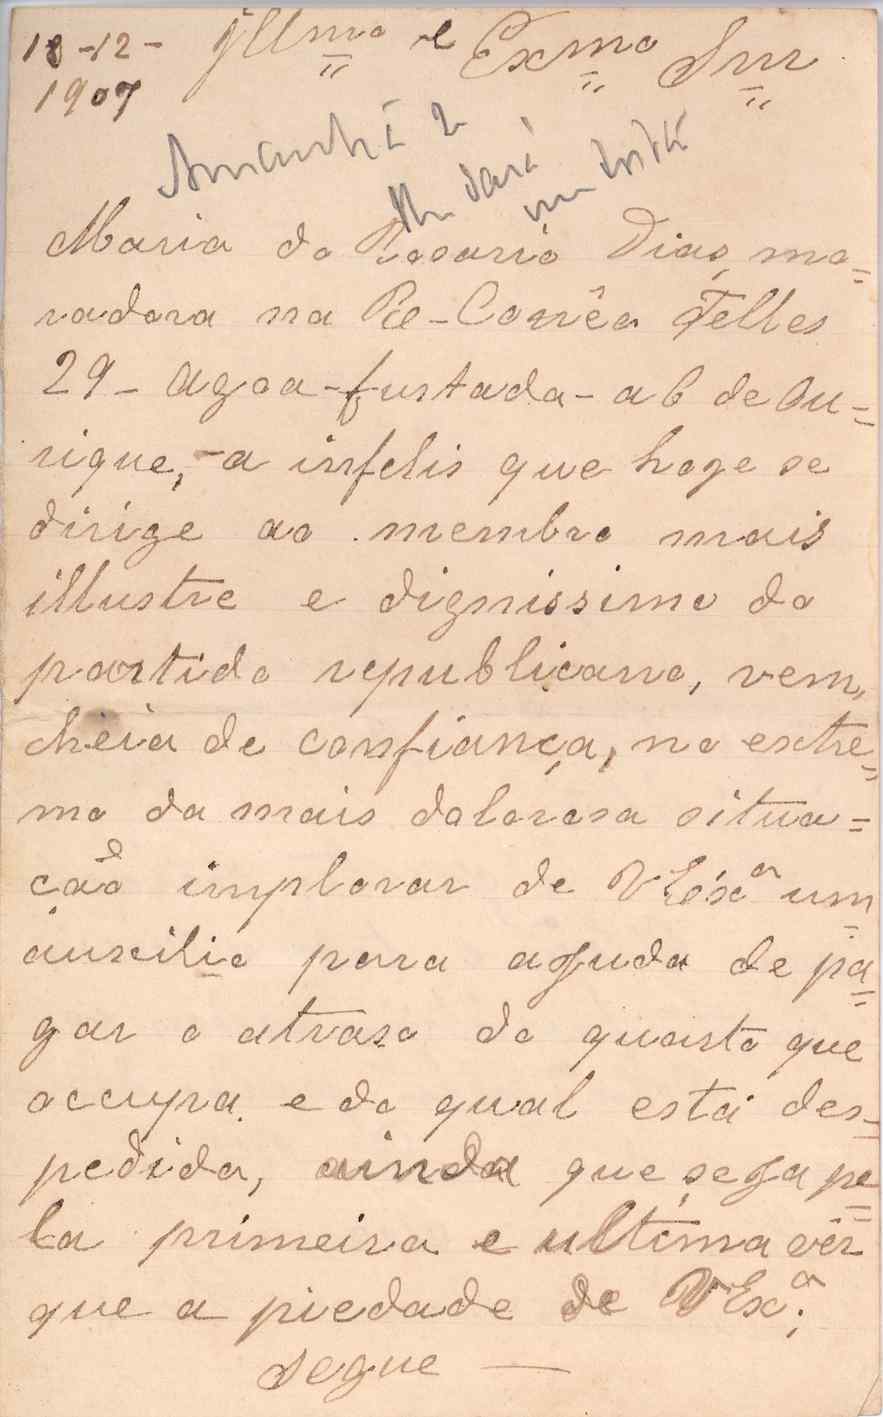 18-12-
1907
Illmo e Exmo Snr
Amanhã
Maria do Rosario Dias, mo=
radora na Rc-Corrêa Telles
29- Agoa-furtada- a C de Ou=
rique, -a infelis que hoge se
dirige ao membro mais
illustre e dignissimo do
partido republicano, vem,
cheia de confiança, no extre=
mo da mais dolorosa situa=
ção implorar de V Exca um
auxilio para ajuda de pa=
gar o atraso do quarto que
occupa e do qual está des=
pedida, ainda que seja pe=
la primeira e ultima vêz
que a piedade de V Exca.
segue —